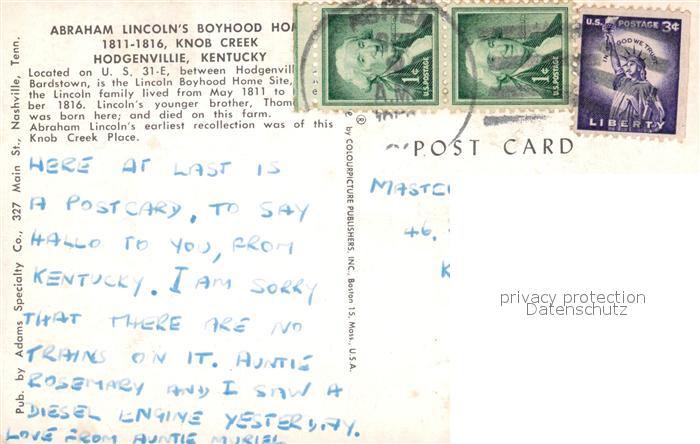 ABRAHAM LINCOLN'S BOYHOOD HOM
1811-1816, KNOB CREEK
HODGENVILLIE, KENTUCKY
Located on U. S. 31-E, between Hodgenvill
Bardstown, is the Lincoln Boyhood Home Site,
the Lincoln family lived from May 1811 to
ber 1816. Lincoln's younger brother, Thom
was born here; and died on this farm.
Abraham Lincoln's earliest recollection was of this
Knob Creek Place.
HERE AT LAST IS
A POSTCARD, TO SAY
HALLO TO YOU, FROM
KENTUCKY. I AM SORRY
THAT THERE ARE NO
TRAINS ON IT. AUNTIE
ROSEMARY AND I SAW A
DIESEL ENGINE YESTERDAY.
LOVE FROM AUNTIE MURIEL
Pub. by Adams Specialty Co., 327 Main St., Nashville, Tenn.
e by COLOURPICTURE PUBLISHERS, INC., Boston 15, Mass., U.S.A.
®
1¢
U.S. POSTAGE
1¢
U.S. POSTAGE
U.S. POSTAGE 3¢
IN GOD WE TRUST
LIBERTY
POST CARD
MASTE
46,
K
privacy protection
Datenschutz